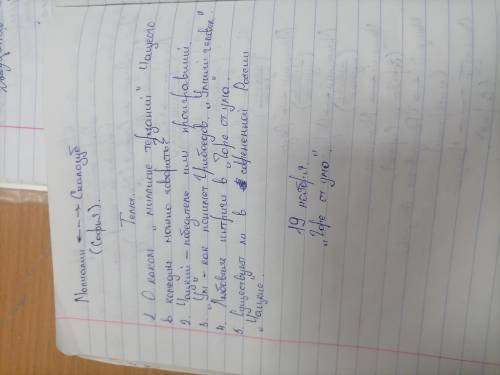 Молчалин ←--→ Скалозуб
(Софья).
Темы.
1. О каком „миллионе терзаний" Чацкого
в комедии можно говорить?
2. Чацкий – победитель или проигравший.
3. „Ум" – как понимает Грибоедов. „Умный человек".
4. Любовные интриги в „Горе от ума".
5. Существуют ли в современной России
„Чацкие...
19 ноября
„Горе от ума"